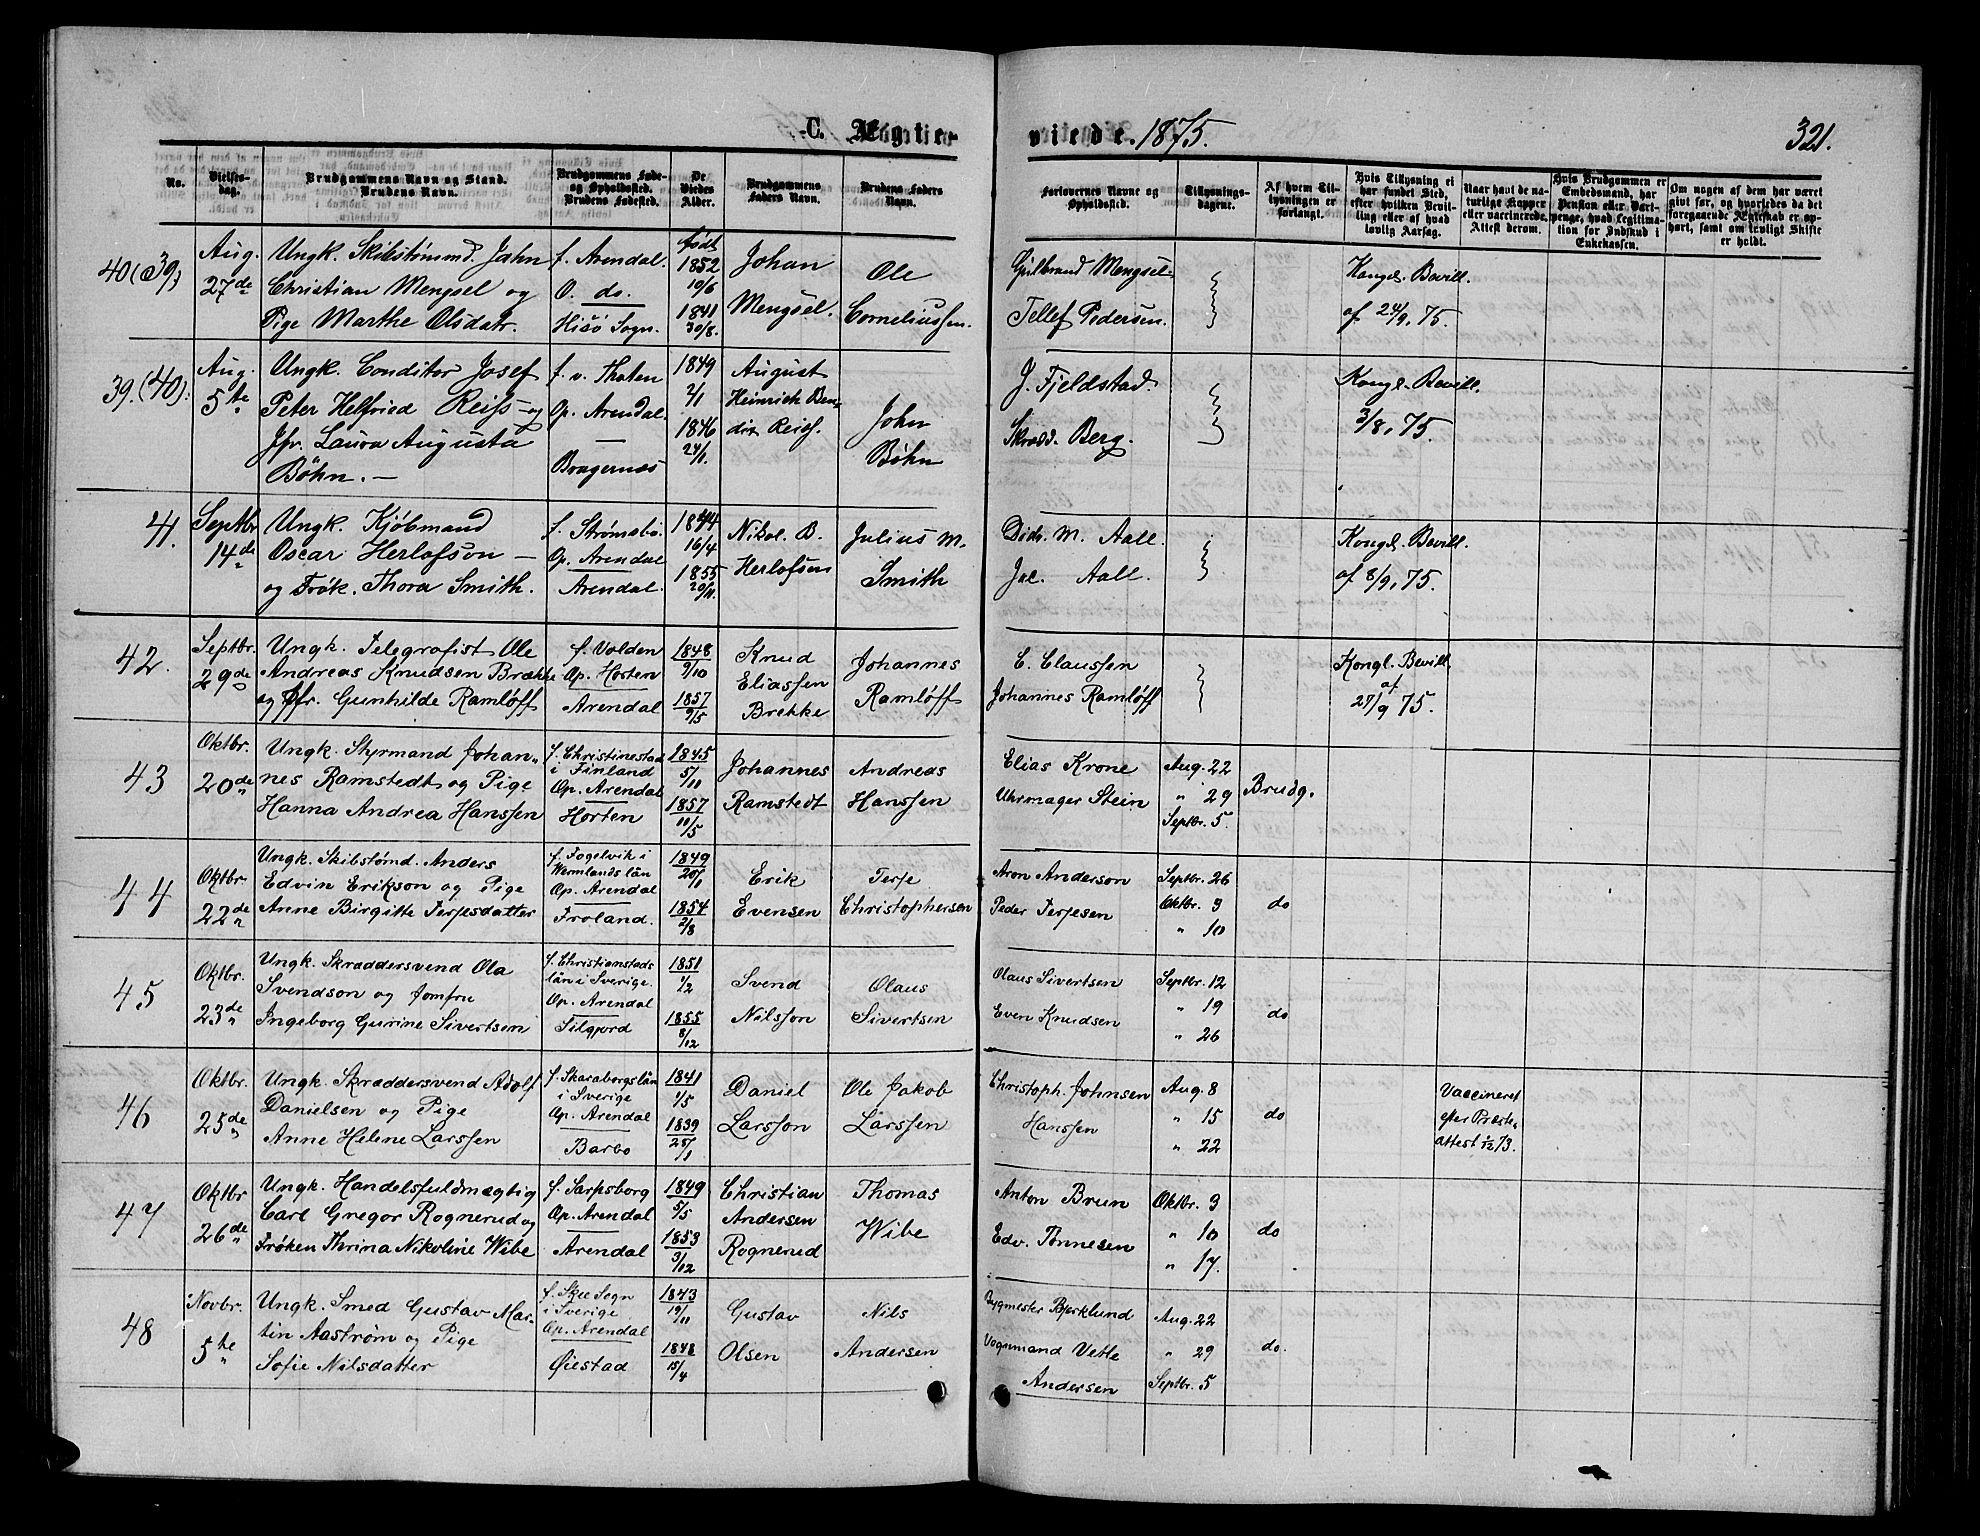 C. Ægte-
viede. 1875.
321.
No.
Vielses-
dag.
Brudgommens Navn og Stand.
Brudens Navn.
Brudgommens Føde-
og Opholdssted.
Brudens Fødested.
De
Viedes
Alder.
Brudgommens
Faders Navn.
Brudens Faders
Navn.
Forlovernes Navne og
Opholdssted.
Tillysnings-
dagene.
Af hvem Til-
lysningen er
forlangt.
Hvis Tillysning ei
har fundet Sted,
efter hvilken Bevil-
ling eller af hvad
lovlig Aarsag.
Naar havt de na-
turlige Kopper
eller vaccinerede.
Attest derom.
Hvis Brudgommen er
Embedsmand, har
Pension eller Vart-
penge, hvad Legitima-
tion for Indskud i
Enkekassen.
Om nogen af dem har været
gift før, og hvorledes da det
foregaaende Ægteskab er op-
hørt, samt om lovligt Skifte
er holdt.
40 (39)
Aug.
27de
Ungk. Skibstømmd. Jahn
Christian Mengsel og
Pige Marthe Olsdatr.
f. Arendal.
O. do.
Hisö Sogn.
født
1852
10/6
1841
30/8.
Johan
Mengsel.
Ole
Corneliussen.
Gulbrand Mengsel
Tellef Pedersen.
Kongel. Bevill.
af 24/9, 75.
39. (40).
Aug.
5te
Ungk. Conditor Josef
Peter Helfried Reiss og
Jfr. Laura Augusta
Böhn. —
f. v. Thaten
Op. Arendal.
Bragernæs
1849
2/1
1846
24/1.
August
Heinrich Ben-
dix Reiss.
John
Bøhn
J. Fjeldstad.
Skrædd. Berg.
Kongl. Bevill.
3/8, 75.
41.
Septbr
14de
Ungk. Kjöbmand
Oscar Herlofson —
og Frøk. Thora Smith.
f. Strømsbo.
Op. Arendal
Arendal.
1844
16/4
1855
20/11.
Nikol. B.
Herlofsen
Julius M.
Smith
Didr. M. Aall.
Jac. Aall.
Kongl. Bevill.
af 8/9, 75.
42.
Septbr.
29de
Ungk. Telegrafist Ole
Andreas Knudsen Brække
og Jfr. Gunhilde Ramløff
f. Volden
Op. Horten
Arendal
1848
9/10
1857
9/5
Knud
Eliassen
Brekke
Johannes
Ramløff
C. Claussen
Johannes Ramløff
Kongl. Bevill.
af
27/9 75.
43
Oktbr.
20de
Ungk. Styrmand Johan-
nes Ramstedt og Pige
Hanna Andrea Hanssen
f. Christinestad
i Finland
Op. Arendal
Horten
1845
5/11
1857
11/5
Johannes
Ramstedt
Andreas
Hanssen
Elias Krone
Uhrmager Stein
Aug. 22
" 29
Septbr. 5.
Brudg.
44
Oktbr.
22de
Ungk. Skibstømd. Anders
Edvin Erikson og Pige
Anne Birgitte Terjesdatter
f. Fogelvik i
Wermlands län
Op. Arendal
Froland.
1849
20/1
1854
2/8
Erik
Evensen
Terje
Christophersen
Aron Anderson
Peder Terjesen
Septbr. 26
Oktbr. 3
" 10
do
45
Oktbr.
23de
Ungk. Skræddersvend Ola
Svendson og Jomfru
Ingeborg Gurine Sivertsen
f. Christianstads
län i Sverige.
Op. Arendal
Silgjord
1851
1/2
1855
8/12
Svend
Nilsson
Olaus
Sivertsen
Olaus Sivertsen
Even Knudsen
Septbr. 12
" 19
" 26
do
46
Oktbr.
25de
Ungk. Skræddersvend Adolf
Danielsen og Pige
Anne Helene Larssen
f. Skaraborgs län
i Sverige
Op. Arendal
Barbo
1841
1/5
1839
25/1
Daniel
Larsson
Ole Jakob
Larssen
Christoph. Johnsen
Hanssen
Aug. 8
" 15
" 22
do
Vaccineret
efter Præste-
attest 1/12 73.
47
Oktbr
26de
Ungk. Handelsfuldmægtig
Carl Gregor Rognerud og
Frøken Thrina Nikoline Wibe
f. Sarpsborg
Op. Arendal
Arendal
1849
5/5
1853
3/12
Christian
Andersen
Rognerud
Thomas
Wibe
Anton Brun
Edv. Tønnesen
Oktbr. 3
" 10
" 17.
do
48
Novbr.
5te
Ungk. Smed Gustav Mar-
tin Aastrøm og Pige
Sofie Nilsdatter
f. Skee Sogn
i Sverige
Op. Arendal
Øiestad
1843
19/11
1848
15/4
Gustav
Olsen
Nils
Andersen
Bygmester Bjørklund
Vognmand Vetle
Andersen
Aug. 22
" 29
Septbr. 5
do.